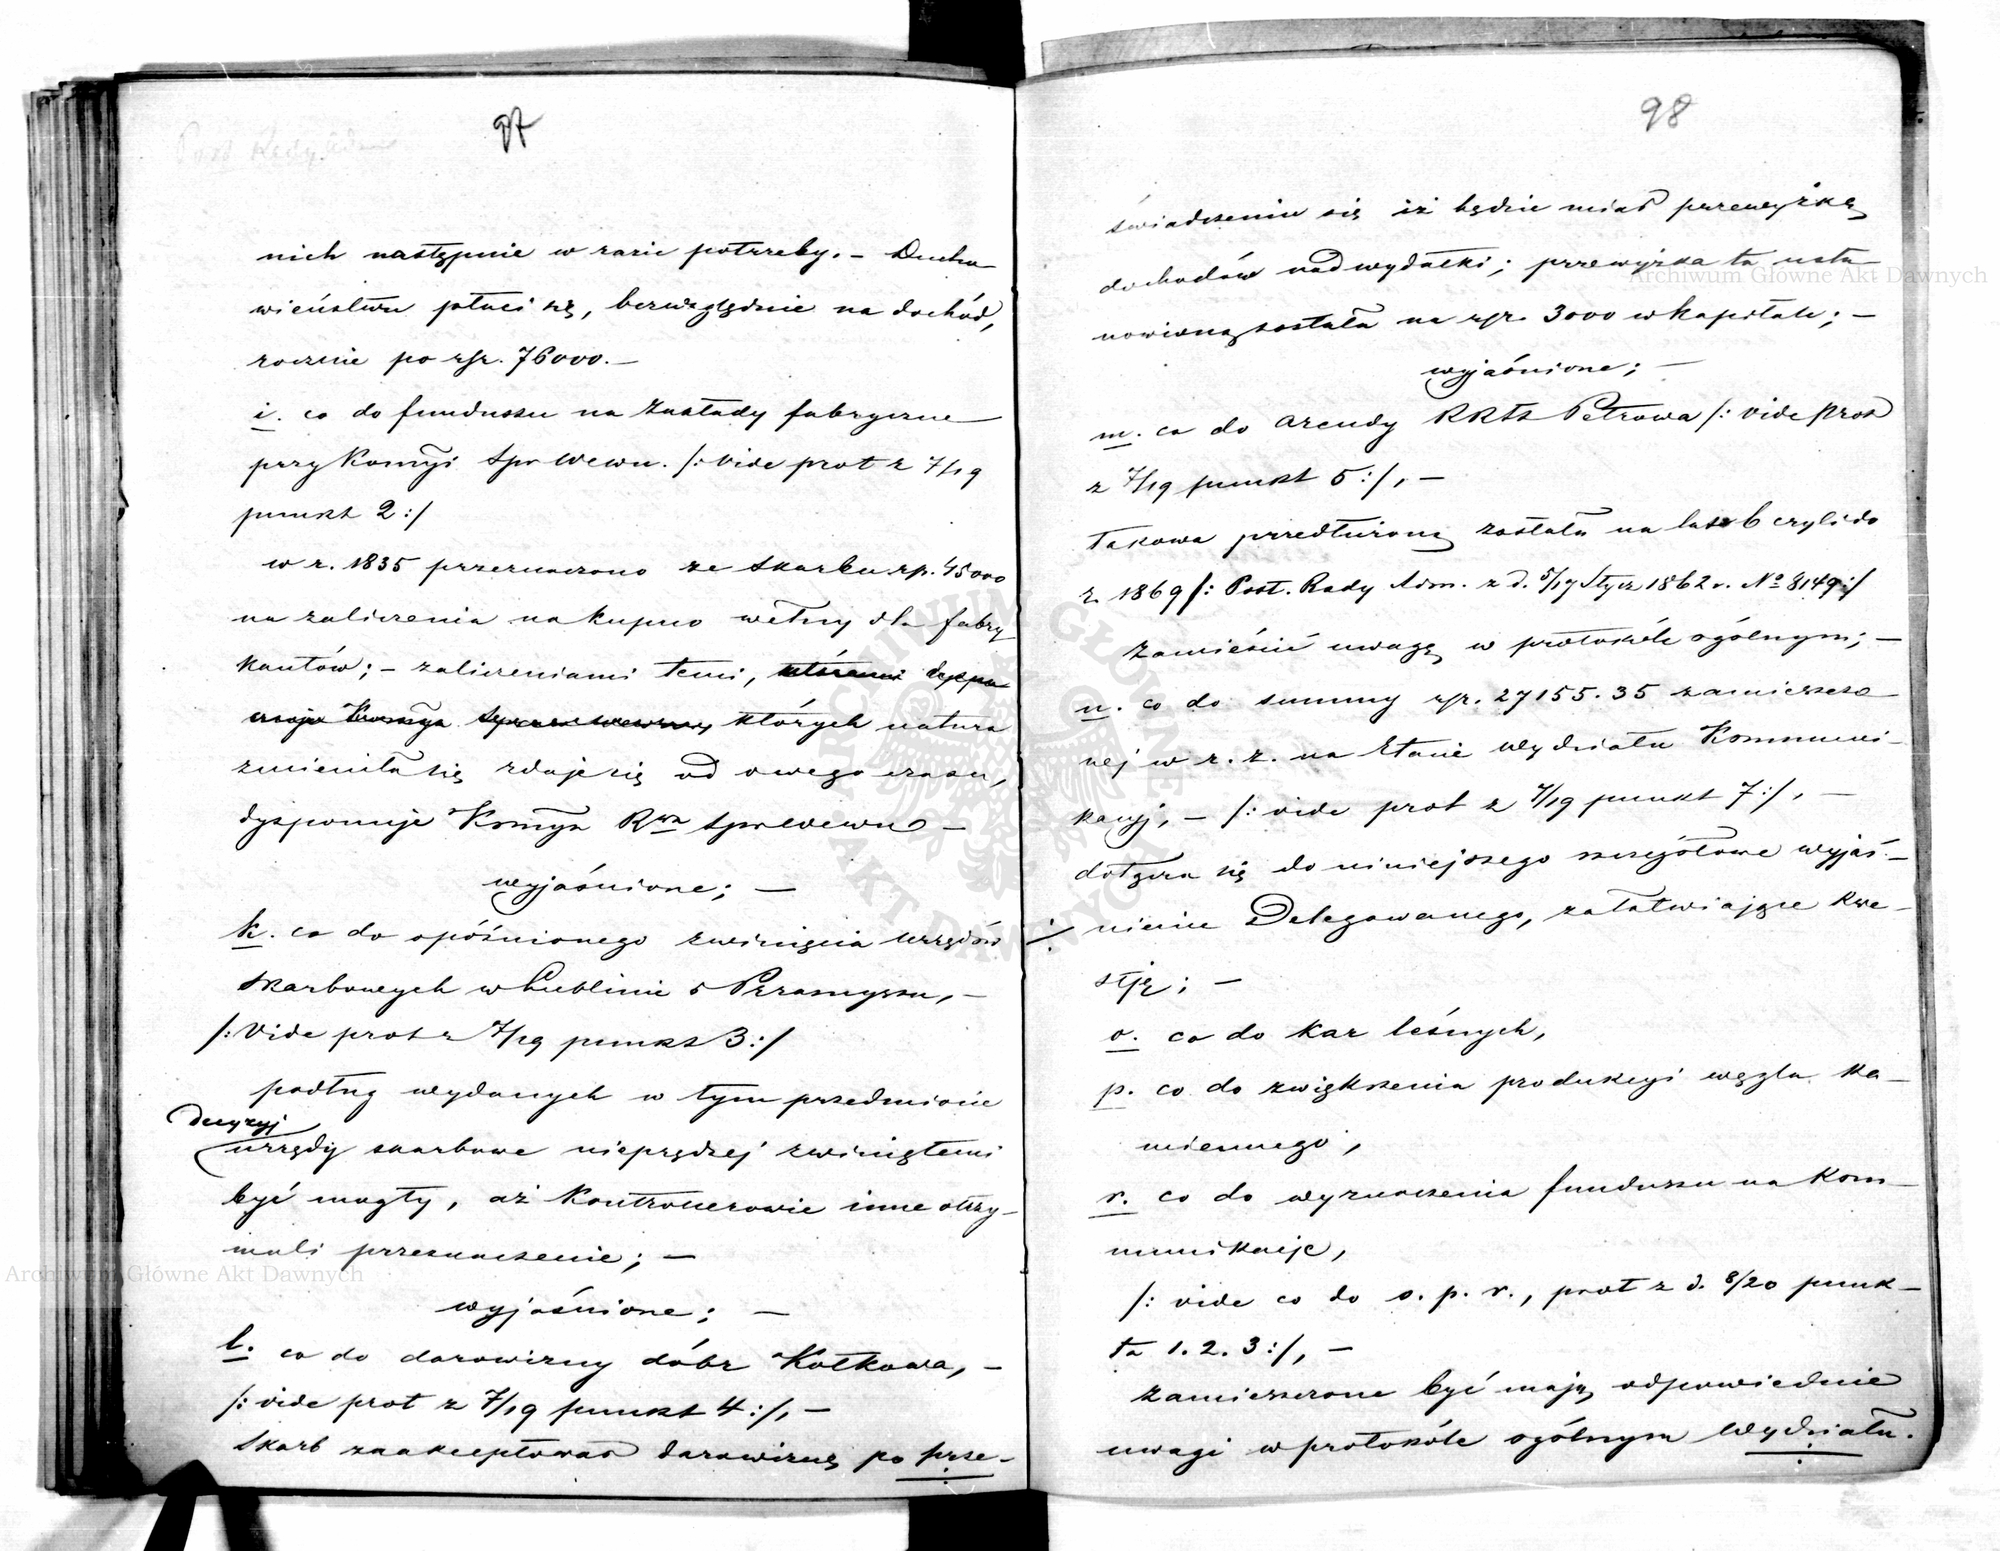 97
nich następnie w razie potrzeby. – Ducho
wieństwu płaci się, bezwzględnie na dochód,
rocznie po rsr. 76000. –
i. co do funduszu na Zakłady fabryczne
przy Kommyi Spr Wewn. /: vide prot z 7/19
punkt 2 :/
w r. 1835 przeznaczono ze Skarbu rp. 45000
na zaliczenia na kupno wełny dla fabry
kantów; – zaliczeniami temi, któremi dyspo
nuje Kommya Spraw Wewn, których natura
zmieniła się zdaje się od owego czasu,
dysponuje Kommya Rwa Spr Wewn –
wyjaśnione; –
k. co do opóźnionego zwinięcia urzędów
skarbowych w Lublinie i Przasnyszu, –
/: Vide prot z 7/19 punkt 3 :/
podług wydanych w tym przedmiocie
decyzyj
urzędy skarbowe nieprędzej zwiniętemi
być mogły, aż Kontrolerowie inne otrzy–
mali przeznaczenie; –
wyjaśnione; –
l. co do darowizny dóbr Kotkowa, –
/: vide prot z 7/19 punkt 4 :/, –
Skarb zaakceptował darowiznę po prze–
98
świadczeniu się iż będzie miał przewyżkę
dochodów nad wydatki; przewyżka ta usta
nowioną została na rsr. 3000 w kapitale; –
wyjaśnione; –
m. co do arendy RRSt Petrowa /: vide prot
z 7/19 punkt 5 :/, –
Takowa przedłużoną została na lat 6 czyli do
r. 1869 /: Post. Rady Adm. z d. 5/17 Stycz 1862 r. No 8149 :/
Zamieścić uwagę w protokóle ogólnym; –
n. co do summy rsr. 27155.35 zamieszczo
nej w r. z. na Etacie Wydziału Kommuni–
kacyj, – /: vide prot z 7/19 punkt 7 :/, –
dołącza się do niniejszego szczegółowe wyjaś–
nienie Delegowanego, załatwiające kwe–
stję; –
o. co do kar leśnych,
p. co do zwiększenia produkcyi węgla ka–
miennego,
r. co do wyznaczenia funduszu na kom–
munikacje,
/: vide co do o. p. r., prot z d. 8/20 punk–
ta 1. 2. 3 :/, –
Zamieszczone być mają odpowiednie
uwagi w protokóle ogólnym Wydziału.
Archiwum Główne Akt Dawnych
Archiwum Główne Akt Dawnych
ARCHIWUM GŁÓWNE
AKT DAWNYCH